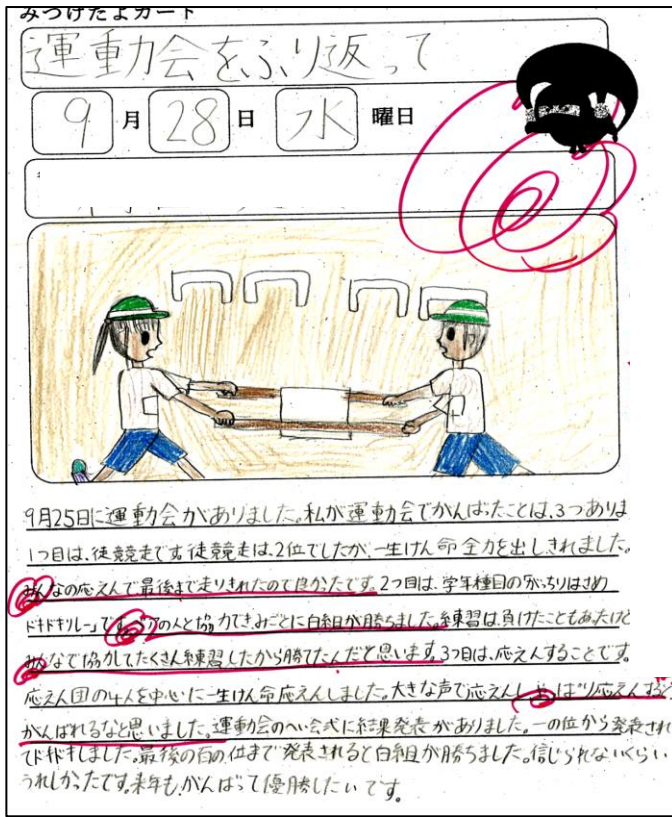 みつけたよカード
運動会をふり返って
9月28日 水曜日
9月25日に運動会がありました。私が運動会でがんばったことは、3つありま
1つ目は、徒競走です。徒競走は、2位でしたが、一生けん命全力を出しきれました。
みんなの応えんで最後まで走りきれたので良かったです。2つ目は、学年種目の「がっちりはさめ
ドキドキリレー」です。の人と協力でき、みごとに白組が勝ちました。練習は負けたこともあったけど
みんなで協力してたくさん練習したから勝てたんだと思います。3つ目は、応えんすることです。
応えん団の4人を中心に一生けん命応えんしました。大きな声で応えん応えんすると
がんばれるなと思いました。運動会のへい会式に結果発表がありました。一の位から発表され
てドキドキしました。最後の百の位まで発表されると白組が勝ちました。信じられないくらい
うれしかったです。来年も、がんばって優勝したいです。